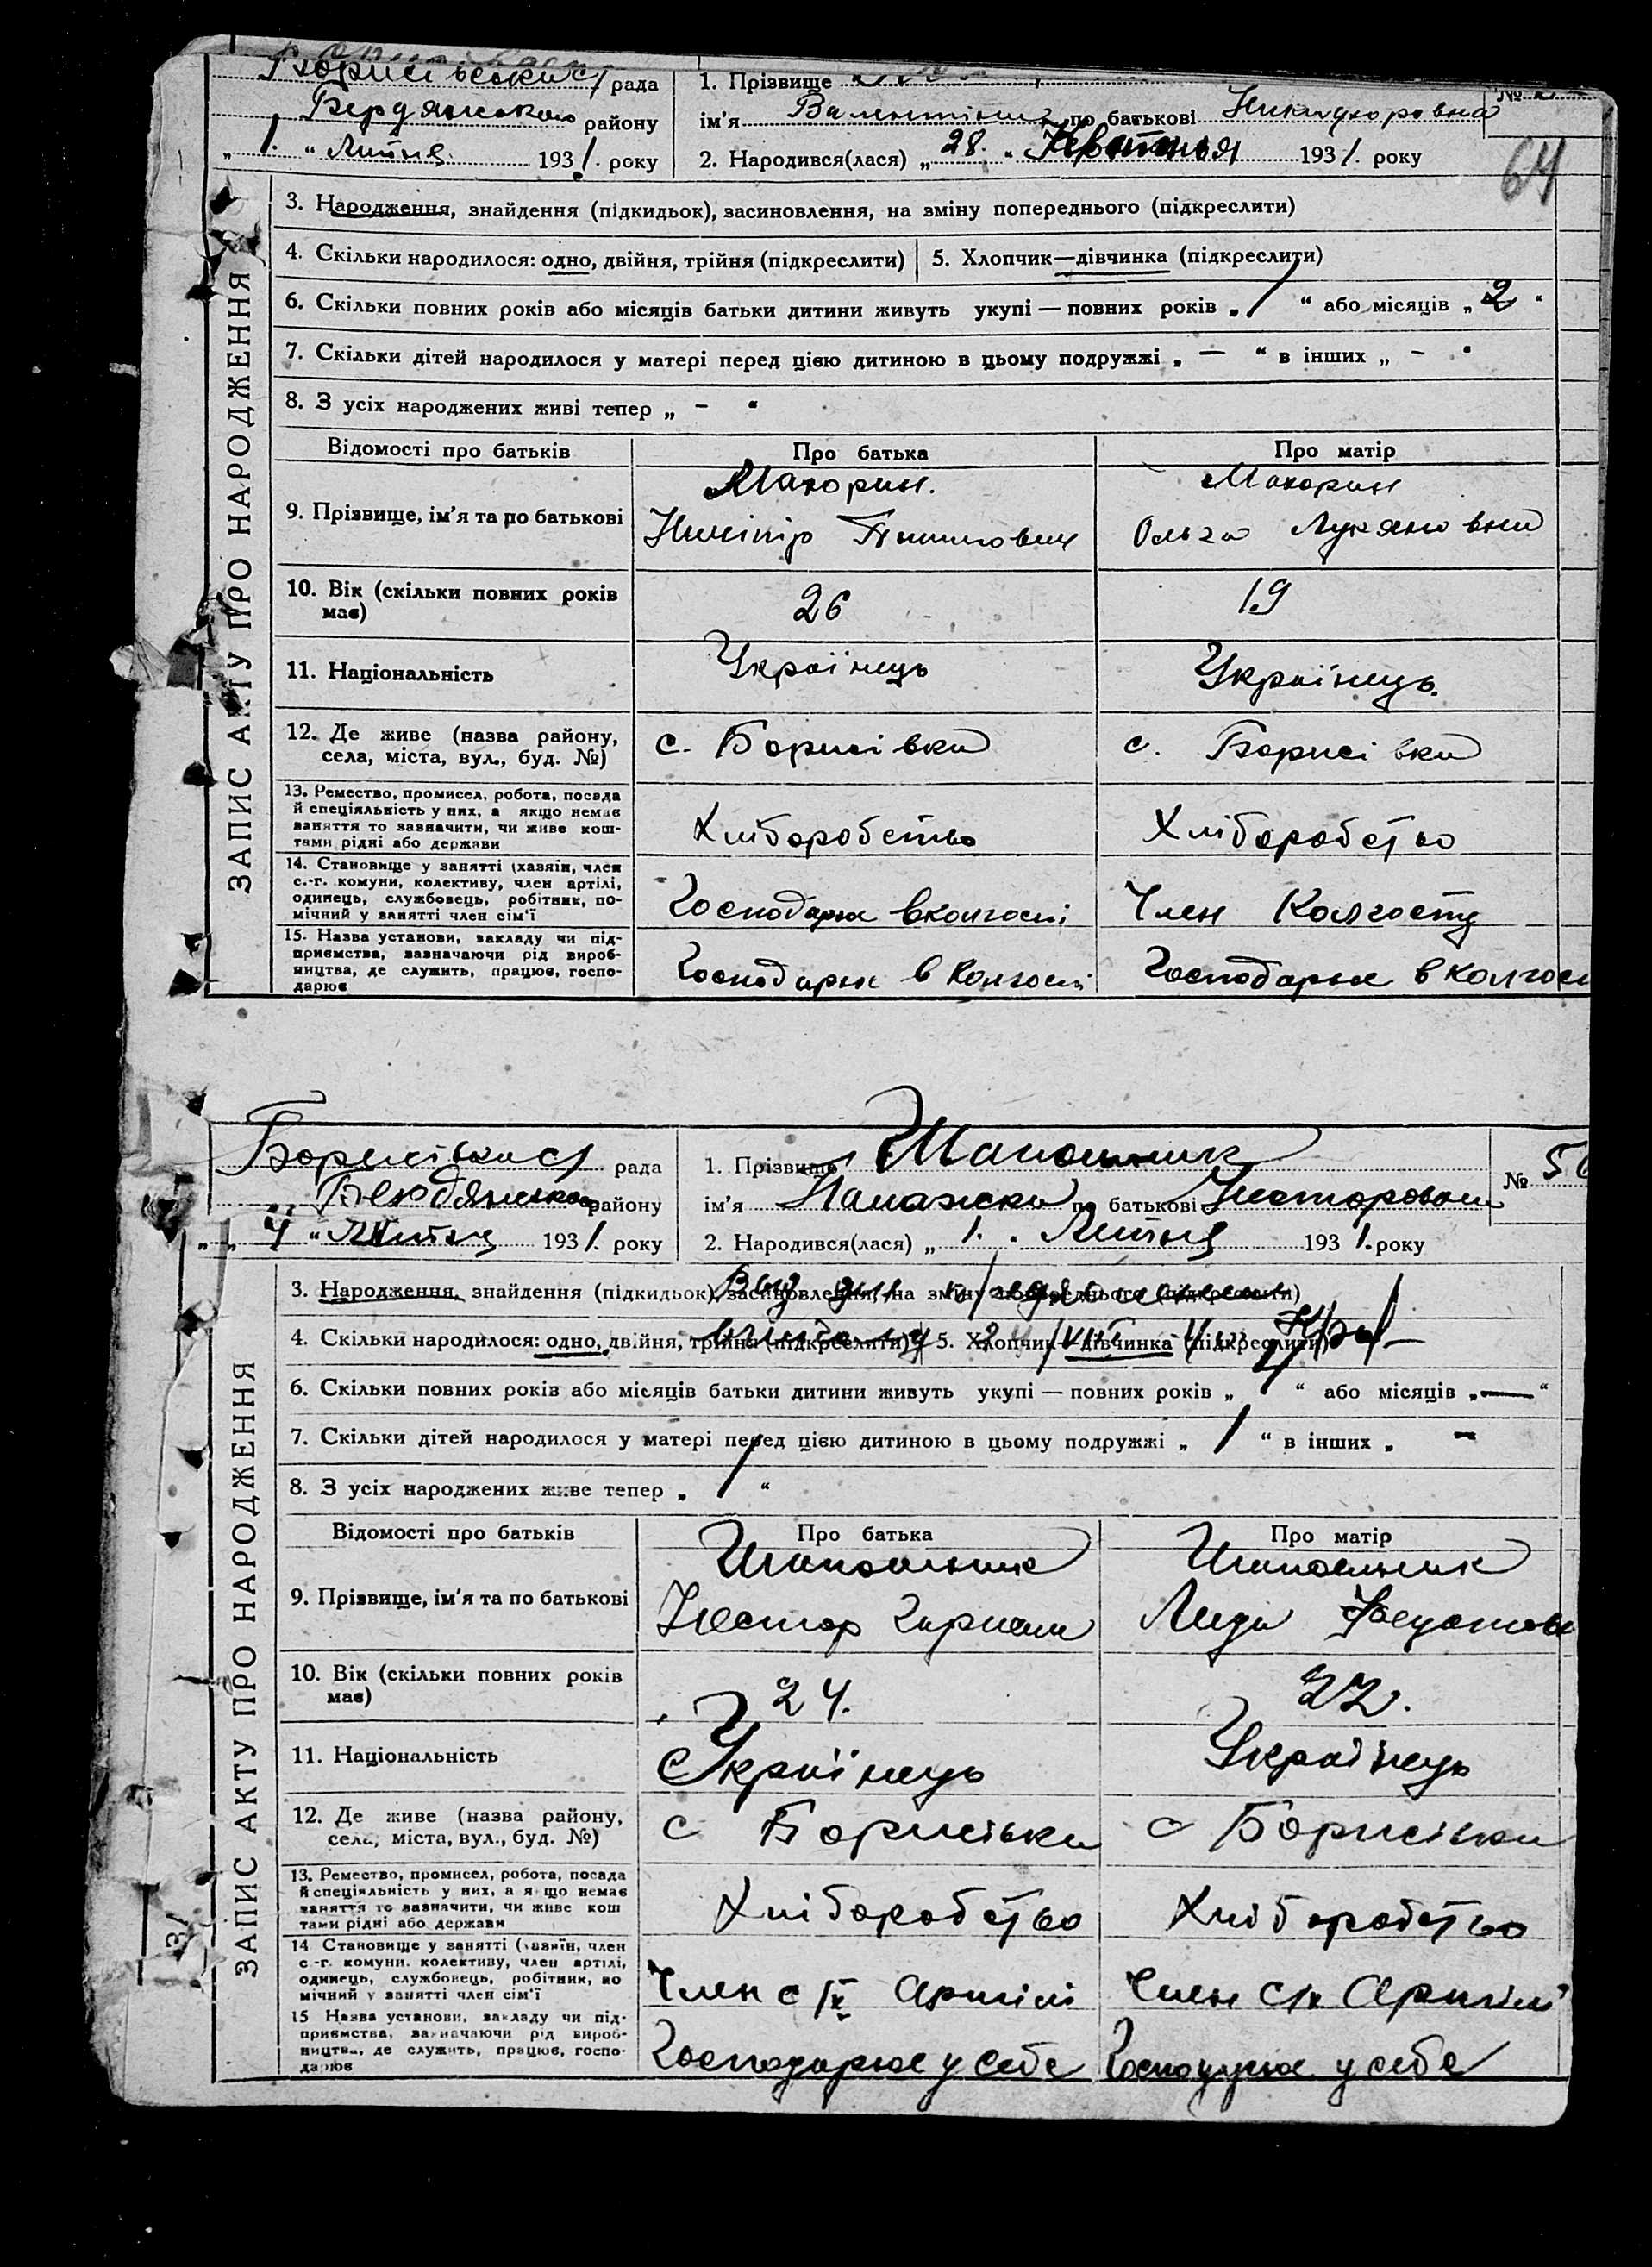 Борисівська рада
Бердянського району
„ 1. “ Липня 1931. року
1. Прізвище
ім'я Валентина по батькові
2. Народився(лася) „ 28. “ 1931. року
№
64
ЗАПИС АКТУ ПРО НАРОДЖЕННЯ
3. Народження, знайдення (підкидьок), засиновлення, на зміну попереднього (підкреслити)
4. Скільки народилося: одно, двійня, трійня (підкреслити)
5. Хлопчик—дівчинка (підкреслити)
6. Скільки повних років або місяців батьки дитини живуть укупі — повних років „ 1 “ або місяців „ 2 “
7. Скільки дітей народилося у матері перед цією дитиною в цьому подружжі „ — “ в інших „ - “
8. З усіх народжених живі тепер „ - “
Відомості про батьків
Про батька
Про матір
9. Прізвище, ім'я та по батькові
Махорин.
Махорин
Ничіпір
Ольга Лукяновна
10. Вік (скільки повних років
має)
26
19
11. Національність
Українець
Українець.
12. Де живе (назва району,
села, міста, вул., буд. №)
с. Борисівка
с. Борисівка
13. Ремество, промисел, робота, посада
й спеціяльність у них, а якщо немає
заняття то зазначити, чи живе кош-
тами рідні або держави
Хліборобство
Хліборобство
14. Становище у занятті (хазяїн, член
с.-г. комуни, колективу, член артілі,
одинець, службовець, робітник, по-
мічний у занятті член сім'ї
Господарює в колгоспі
Член Колгоспу
15. Назва установи, закладу чи під-
приємства, зазначаючи рід вироб-
ництва, де служить, працює, госпо-
дарює
Господарює в Колгоспі
Господарює в колгосп
Борисівська рада
Бердянського району
„ 4 “ Липня 1931. року
1. Прізвище Шапошник
ім'я по батькові
2. Народився(лася) „ 1. “ Липня 1931. року
№ 5
ЗАПИС АКТУ ПРО НАРОДЖЕННЯ
3. Народження, знайдення (підкидьок), засиновлення, на зміну попереднього (підкреслити)
4. Скільки народилося: одно, двійня, трійня (підкреслити)
5. Хлопчик—дівчинка (підкреслити)
6. Скільки повних років або місяців батьки дитини живуть укупі — повних років „ “ або місяців „ — “
7. Скільки дітей народилося у матері перед цією дитиною в цьому подружжі „ 1 “ в інших „ -
8. З усіх народжених живе тепер „ 1 “
Відомості про батьків
Про батька
Про матір
9. Прізвище, ім'я та по батькові
Шапошник
Шапошник
Нестор
Лида
10. Вік (скільки повних років
має)
24.
22.
11. Національність
Українець
Українець
12. Де живе (назва району,
села, міста, вул., буд. №)
с Борисівка
с Борисівка
13. Ремество, промисел, робота, посада
й спеціяльність у них, а якщо немає
заняття то зазначити, чи живе кош
тами рідні або держави
Хліборобство
Хліборобство
14 Становище у занятті (хазяїн, член
с.-г. комуни, колективу, член артілі,
одинець, службовець, робітник, по
мічний у занятті член сім'ї
Член с/г Артілі
Член с/г Артілі
15 Назва установи, закладу чи під-
приємства, зазначаючи рід вироб-
ництва, де служить, працює, госпо-
дарює
Господарює у себе
Господарює у себе